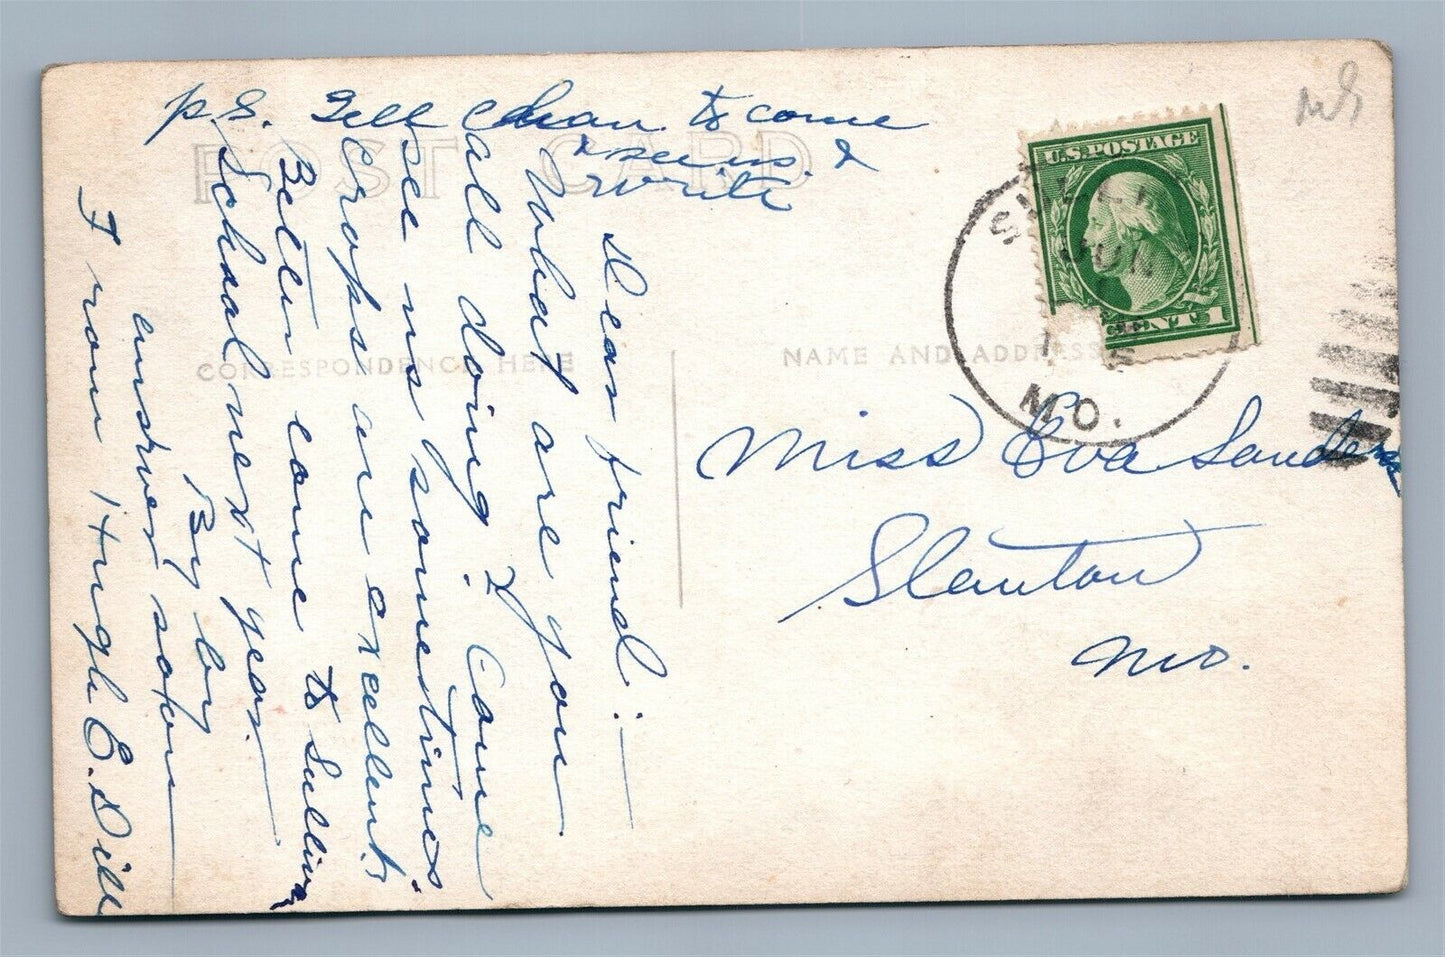 P.S. Tell to come
& see us &
write
POST CARD
U.S. POSTAGE
CENT 1
JUN
MO.
CORRESPONDENCE HERE
NAME AND ADDRESS
Miss Eva Sanders
Stanton
Mo.
Dear friend:—
What are you
all doing? Come
see us sometimes
Crops are excellent,
Better come to Sullivan
School next year.
By by
answer soon
From Hugh E. Dill